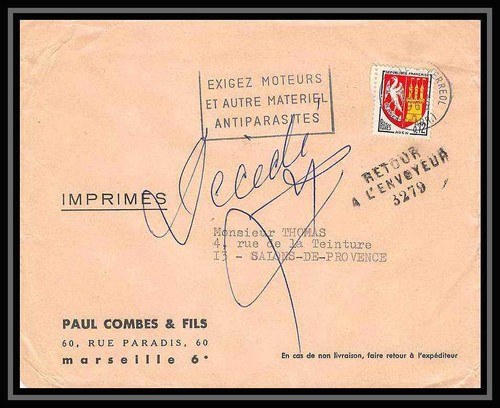 EXIGEZ MOTEURS
ET AUTRE MATERIEL
ANTIPARASITÉS
REPUBLIQUE FRANÇAISE
0,12
AGEN
RETOUR
A L'ENVOYEUR
3279
Décédé
IMPRIMES
Monsieur THOMAS
4, rue de la Teinture
I3 - SALONS-DE-PROVENCE
PAUL COMBES & FILS
60, RUE PARADIS, 60
marseille 6e
En cas de non livraison, faire retour à l'expéditeur